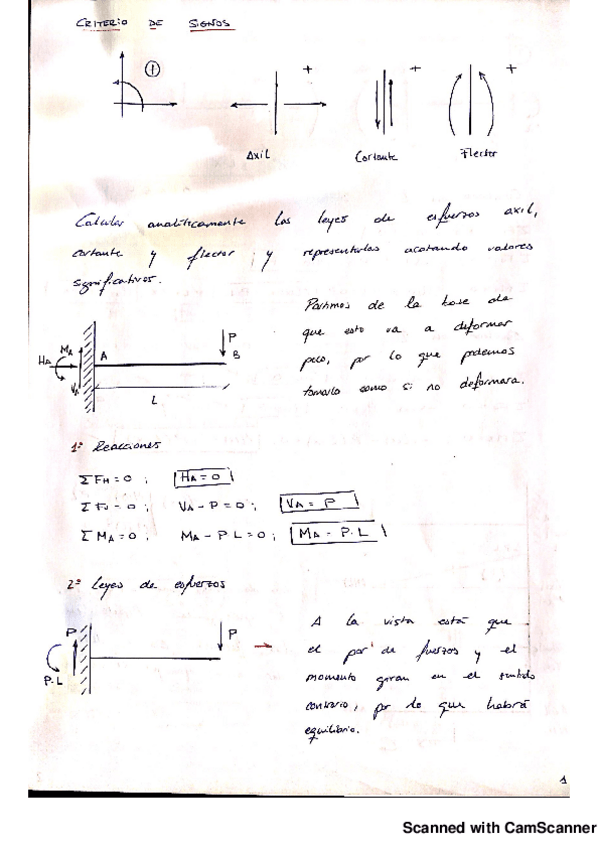 CRITERIO DE SIGNOS
1
+
+
+
Axil
Cortante
Flector
Calcular analíticamente las leyes de esfuerzos axil,
cortante y flector y representarlas acotando valores
significativos.
Partimos de la base de
que esto va a deformar
poco, por lo que podemos
tomarlo como si no deformara.
HA
MA
VA
A
P
B
L
1º Reacciones
ΣFH = 0 ; HA = 0
ΣFV = 0 ; VA - P = 0 ; VA = P
ΣMA = 0 ; MA - P L = 0 ; MA = P·L
2º Leyes de esfuerzos
P
P·L
P
A la vista está que
el par de fuerzas y el
momento giran en el sentido
contrario, por lo que habrá
equilibrio.
1
Scanned with CamScanner